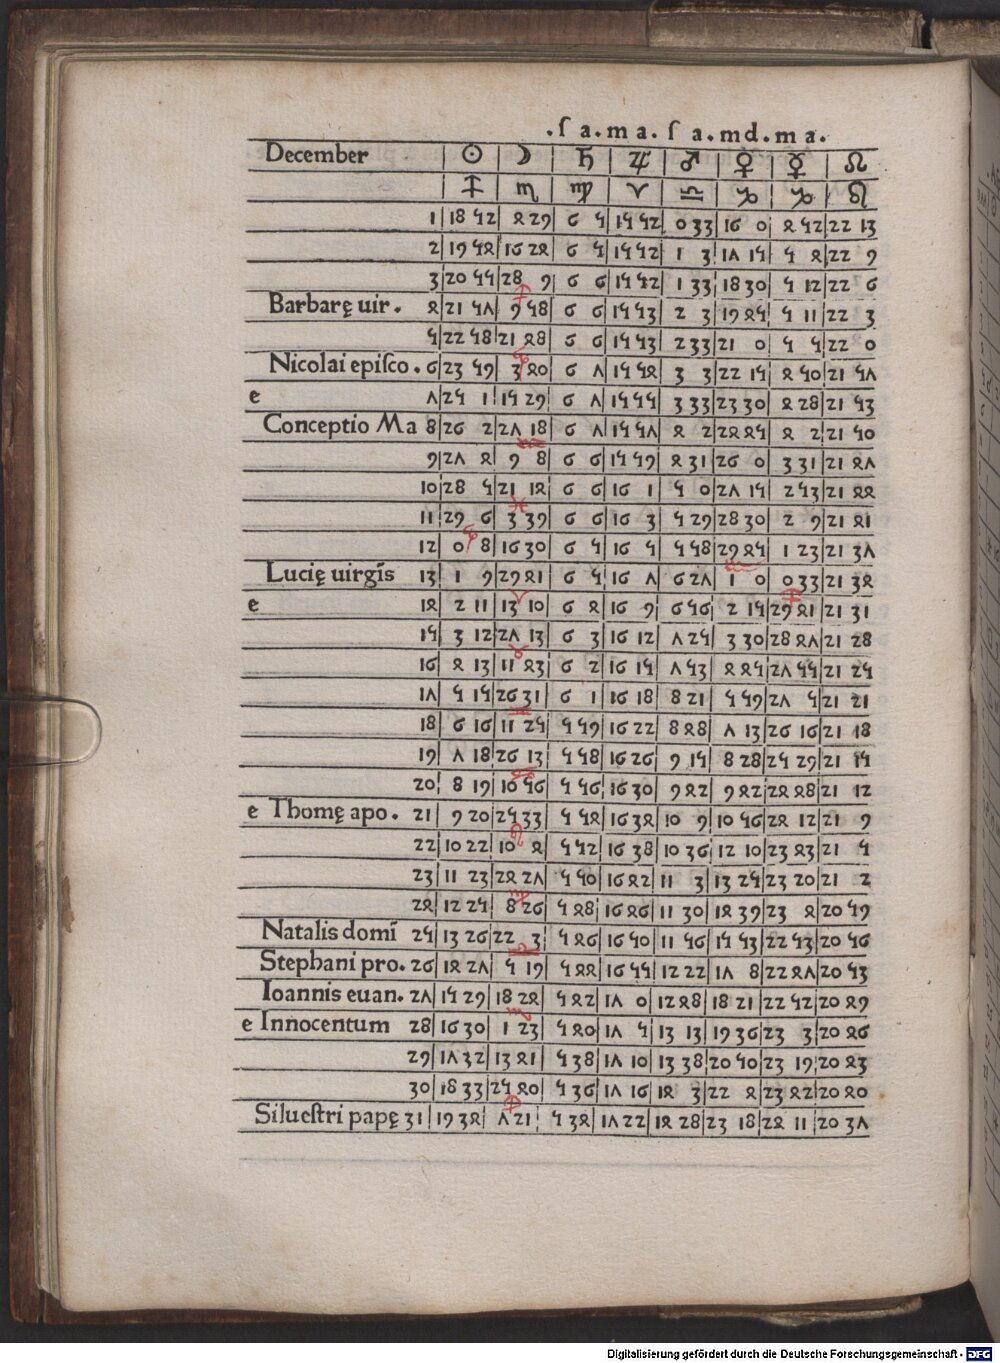 .ſ a. m a. ſ a. m d. m a.
December ☉ ☽ ♄ ♃ ♂ ♀ ☿ ☊
♐ ♏ ♍ ♈ ♎ ♑ ♑ ♌
1 18 52 4 29 6 5 15 52 0 33 16 0 4 52 22 13
2 19 54 16 24 6 5 15 52 1 3 17 15 5 4 22 9
3 20 55 28 9 6 6 15 52 1 33 18 30 5 12 22 6
Barbarę uir. 4 21 57 9 58 6 6 15 53 2 3 19 45 5 11 22 3
5 22 58 21 48 6 6 15 53 2 33 21 0 5 5 22 0
Nicolai epiſco. 6 23 59 3 40 6 7 15 54 3 3 22 15 4 50 21 57
e 7 25 1 15 29 6 7 15 55 3 33 23 30 4 28 21 53
Conceptio Ma 8 26 2 27 18 6 7 15 57 4 2 24 45 4 2 21 50
9 27 4 9 8 6 6 15 59 4 31 26 0 3 31 21 47
10 28 5 21 14 6 6 16 1 5 0 27 15 2 53 21 44
11 29 6 3 39 6 6 16 3 5 29 28 30 2 9 21 41
12 0 8 16 30 6 5 16 5 5 58 29 45 1 23 21 37
Lucię uirgīs 13 1 9 29 41 6 5 16 7 6 27 1 0 0 33 21 34
e 14 2 11 13 10 6 4 16 9 6 56 2 15 29 41 21 31
15 3 12 27 13 6 3 16 12 7 25 3 30 28 47 21 28
16 4 13 11 43 6 2 16 15 7 53 4 45 27 55 21 25
17 5 15 26 31 6 1 16 18 8 21 5 59 27 5 21 21
18 6 16 11 25 5 59 16 22 8 48 7 13 26 16 21 18
19 7 18 26 13 5 58 16 26 9 15 8 28 25 29 21 15
20 8 19 10 56 5 56 16 30 9 42 9 42 24 48 21 12
e Thomę apo. 21 9 20 25 33 5 54 16 34 10 9 10 56 24 12 21 9
22 10 22 10 4 5 52 16 38 10 36 12 10 23 43 21 5
23 11 23 24 27 5 50 16 42 11 3 13 25 23 20 21 2
24 12 25 8 26 5 48 16 46 11 30 14 39 23 4 20 59
Natalis domī 25 13 26 22 3 5 46 16 50 11 56 15 53 22 53 20 56
Stephani pro. 26 14 27 5 19 5 44 16 55 12 22 17 8 22 47 20 53
Ioannis euan. 27 15 29 18 24 5 42 17 0 12 48 18 21 22 52 20 49
e Innocentum 28 16 30 1 23 5 40 17 5 13 13 19 36 23 3 20 46
29 17 32 13 41 5 38 17 10 13 38 20 50 23 19 20 43
30 18 33 25 40 5 36 17 16 14 3 22 4 23 42 20 40
Silueſtri papę 31 19 34 7 21 5 34 17 22 14 28 23 18 24 11 20 37
Digitalisierung gefördert durch die Deutsche Forschungsgemeinschaft - DFG